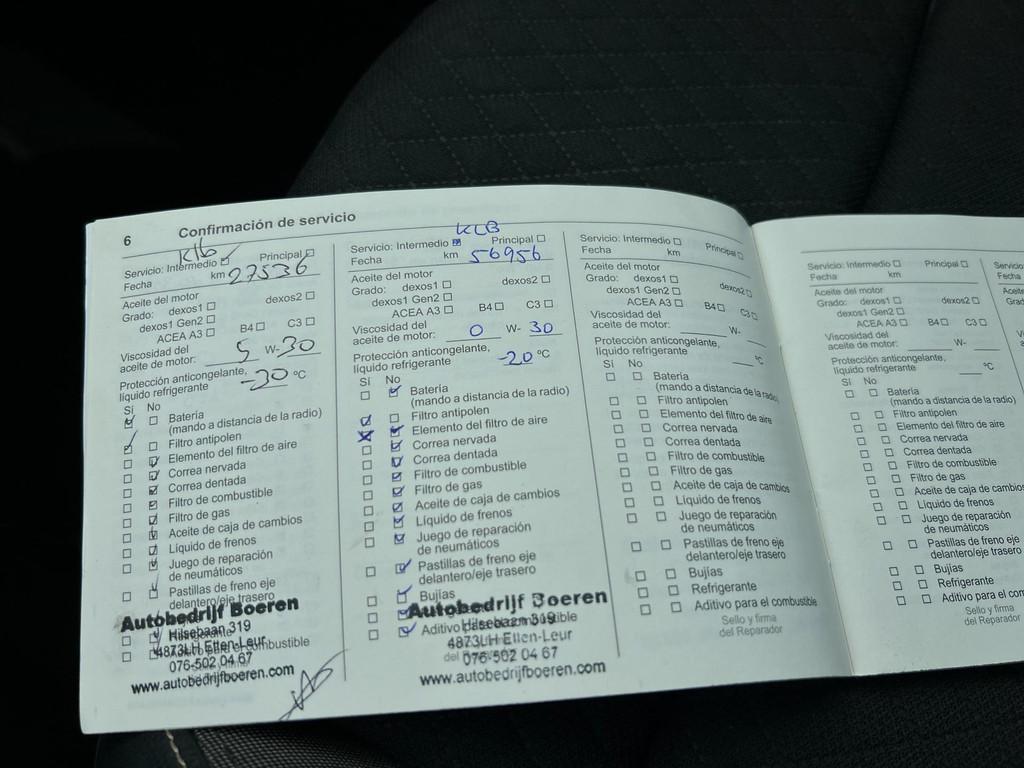 6 Confirmación de servicio
Servicio: Intermedio Principal
Fecha km 27536
Aceite del motor
Grado: dexos1 dexos2
dexos1 Gen2
ACEA A3 B4 C3
Viscosidad del
aceite de motor: 5 W- 30
Protección anticongelante,
líquido refrigerante -30 °C
Sí No
Batería
(mando a distancia de la radio)
Filtro antipolen
Elemento del filtro de aire
Correa nervada
Correa dentada
Filtro de combustible
Filtro de gas
Aceite de caja de cambios
Líquido de frenos
Juego de reparación
de neumáticos
Pastillas de freno eje
delantero/eje trasero
Autobedrijf Boeren
Hilsebaan 319
4873LH Etten-Leur
076-502 04 67
www.autobedrijfboeren.com
KCB
Servicio: Intermedio Principal
Fecha km 56956
Aceite del motor
Grado: dexos1 dexos2
dexos1 Gen2
ACEA A3 B4 C3
Viscosidad del
aceite de motor: 0 W- 30
Protección anticongelante,
líquido refrigerante -20 °C
Sí No
Batería
(mando a distancia de la radio)
Filtro antipolen
Elemento del filtro de aire
Correa nervada
Correa dentada
Filtro de combustible
Filtro de gas
Aceite de caja de cambios
Líquido de frenos
Juego de reparación
de neumáticos
Pastillas de freno eje
delantero/eje trasero
Bujías
Autobedrijf Boeren
Aditivo para el combustible
Hilsebaan 319
4873LH Etten-Leur
076-502 04 67
www.autobedrijfboeren.com
Servicio: Intermedio Principal
Fecha km
Aceite del motor
Grado: dexos1 dexos2
dexos1 Gen2
ACEA A3 B4 C3
Viscosidad del
aceite de motor: W-
Protección anticongelante,
líquido refrigerante °C
Sí No
Batería
(mando a distancia de la radio)
Filtro antipolen
Elemento del filtro de aire
Correa nervada
Correa dentada
Filtro de combustible
Filtro de gas
Aceite de caja de cambios
Líquido de frenos
Juego de reparación
de neumáticos
Pastillas de freno eje
delantero/eje trasero
Bujías
Refrigerante
Aditivo para el combustible
Sello y firma
del Reparador
Servicio: Intermedio Principal
Fecha km
Aceite del motor
Grado: dexos1 dexos2
dexos1 Gen2
ACEA A3 B4 C3
Viscosidad del
aceite de motor: W-
Protección anticongelante,
líquido refrigerante °C
Sí No
Batería
(mando a distancia de la radio)
Filtro antipolen
Elemento del filtro de aire
Correa nervada
Correa dentada
Filtro de combustible
Filtro de gas
Aceite de caja de cambios
Líquido de frenos
Juego de reparación
de neumáticos
Pastillas de freno eje
delantero/eje trasero
Bujías
Refrigerante
Aditivo para el com
Sello y firma
del Reparador